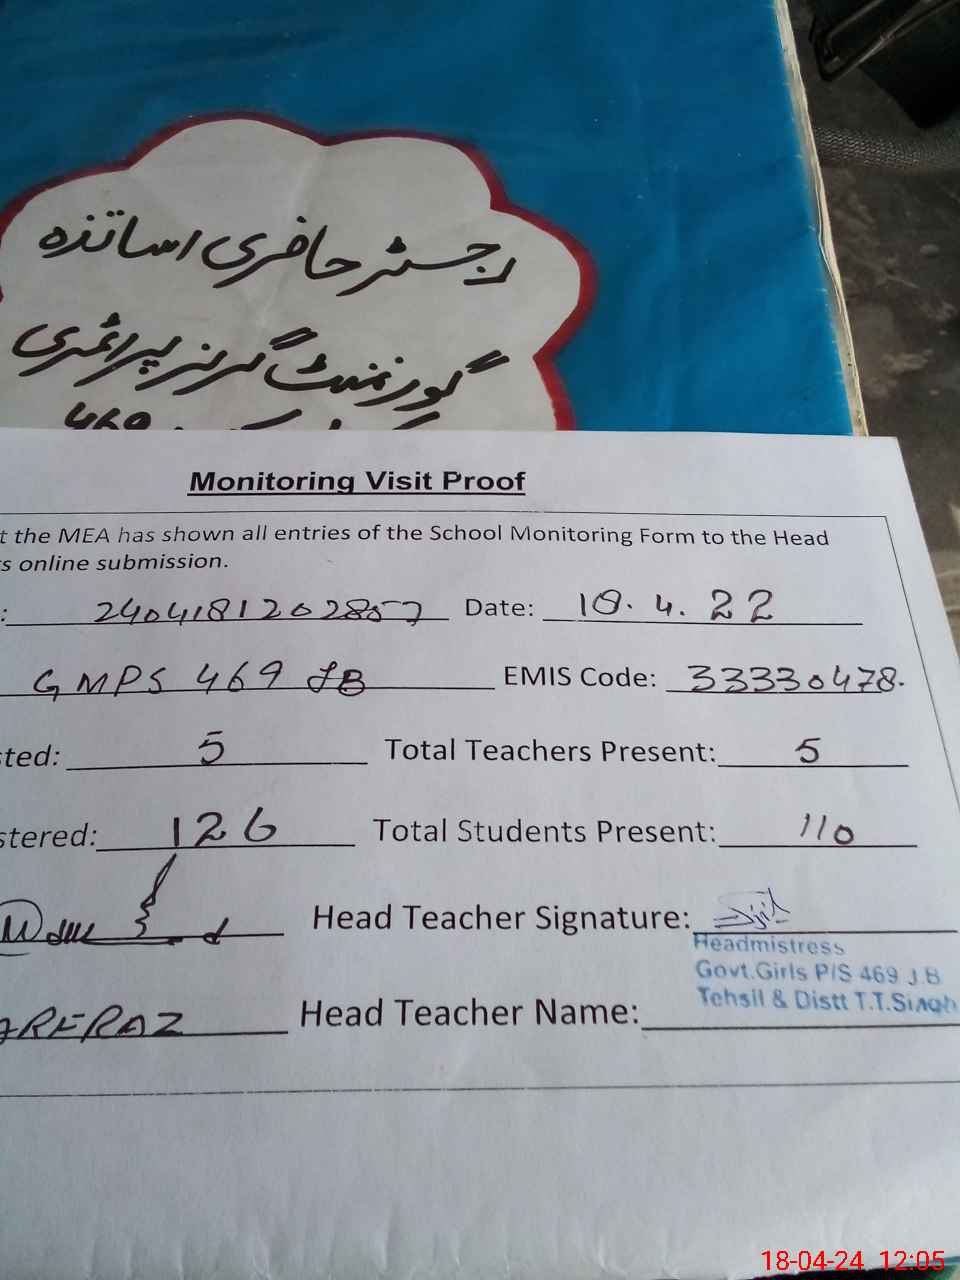 رجسٹر حاضری اساتذہ
گورنمنٹ گرلز پرائمری
469
Monitoring Visit Proof
t the MEA has shown all entries of the School Monitoring Form to the Head
s online submission.
: 2404181202857 Date: 18.4.22
GMPS 469 JB EMIS Code: 33330478.
sted: 5 Total Teachers Present: 5
stered: 126 Total Students Present: 110
Head Teacher Signature:
Headmistress
Govt.Girls P/S 469 J.B
Tehsil & Distt T.T.Singh
Head Teacher Name:
18-04-24 12:05